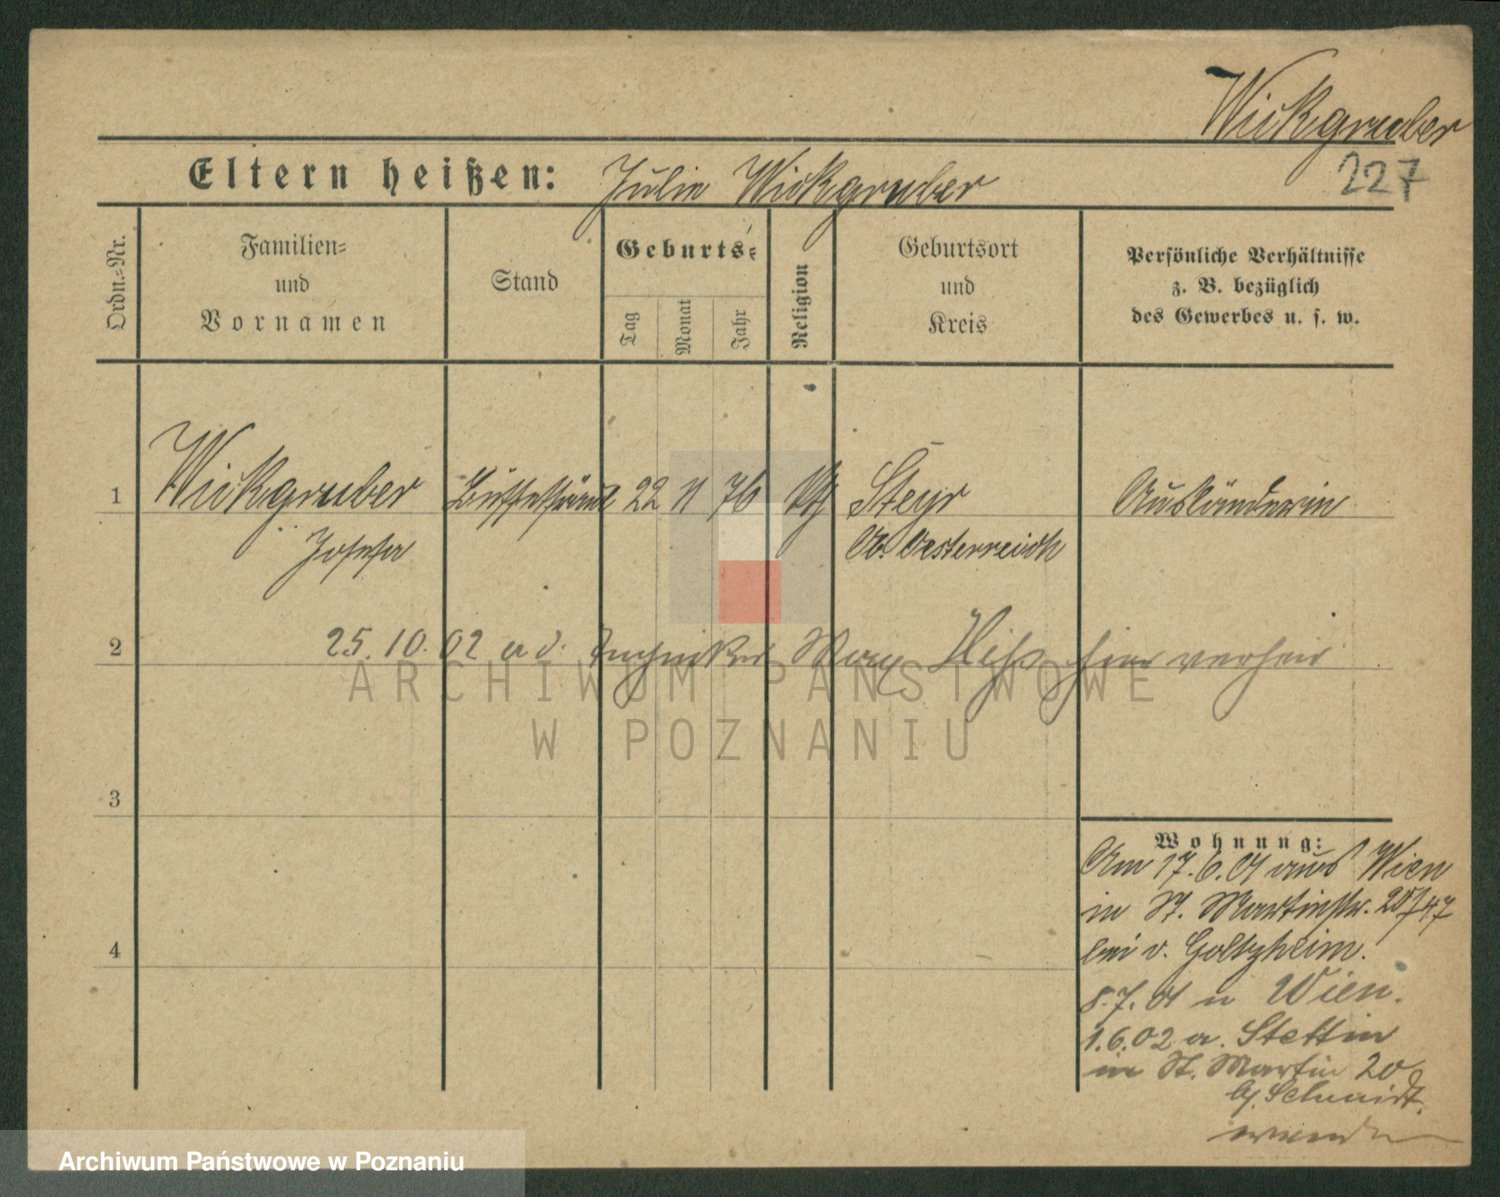 Wickgruber
227
Eltern heißen: Julie Wickgruber
Ordn.-Nr.
Familien-
und
Vornamen
Stand
Geburts-
Tag
Monat
Jahr
Religion
Geburtsort
und
Kreis
Persönliche Verhältnisse
z. B. bezüglich
des Gewerbes u. s. w.
1 Wickgruber 22 11 76 Steyr Ausländerin
Josefa Ob. Oesterreich
2 25.10.02 a d. Techniker Max Hiss hier verheir
ARCHIWUM PAŃSTWOWE
W POZNANIU
3
Wohnung:
Am 17.6.01 aus Wien
in St. Martinstr. 20/47
bei v. Goltzheim.
4
8.7.01 n Wien.
1.6.02 a. Stettin
in St. Martin 20
b/. Schmidt.
Archiwum Państwowe w Poznaniu